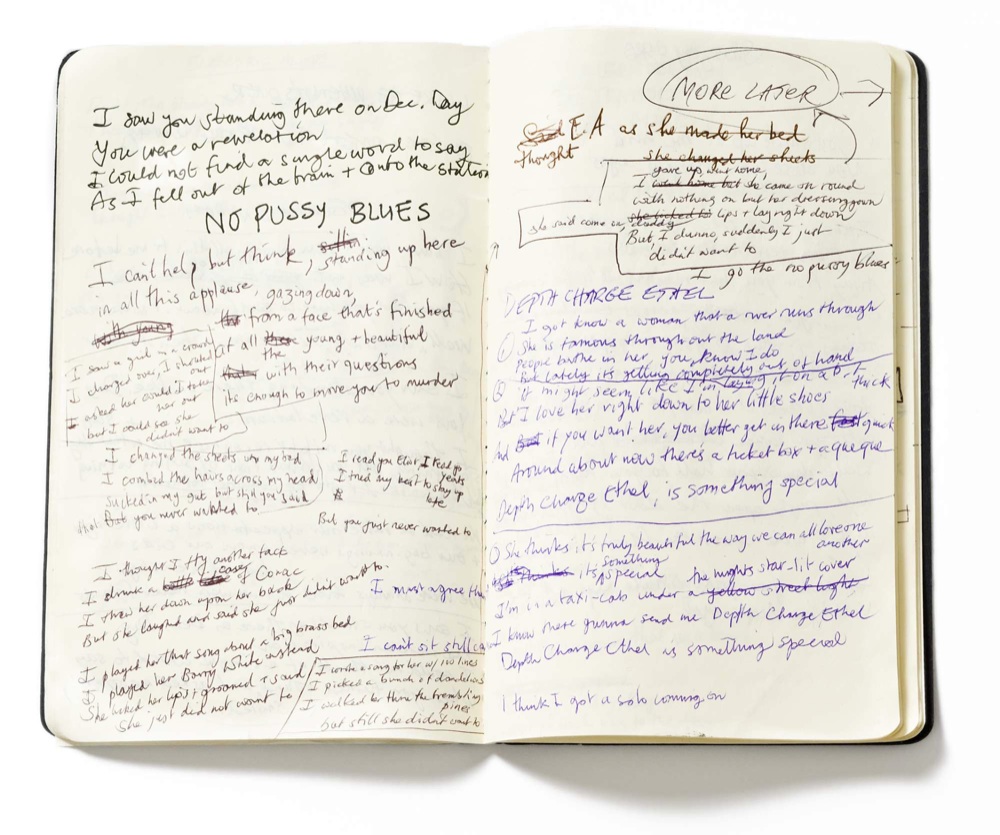 I saw you standing there on Dec. Day
You were a revelation
I could not find a single word to say
As I fell out of the train + onto the station
NO PUSSY BLUES
I can't help but think, standing up here
in all this applause, gazing down,
from a face that's finished
at all the young + beautiful
with their questions
its enough to move you to murder
I saw a girl in a crowd
I changed over, I shouted
I asked her would I take
her out
but I could see she
didn't want to
I changed the sheets upon my bed
I combed the hairs across my head
sucked in my gut but still you said
that you never wanted to
I read you Eliot, I read you
Yeats
I tried my best to stay up
late
But you just never wanted to
I thought I try another tact
I drunk a case of Conac
I threw her down upon her back
But she laughed and said she just didn't want to.
I must agree tha
I can't sit still
I played her that song about a big brass bed
I played her Barry White instead
She licked her lips + groaned + said
She just did not want to
I wrote a song for her w/ 110 lines
I picked a bunch of dandelions
I walked her thru the trembling
pines
but still she didn't want to
MORE LATER
E.A as she made her bed
thought
she changed her sheets
gave up, went home,
I went home but she came on round
with nothing on but her dressing gown
she said come on, she licked her lips + lay right down
But, I dunno, suddenly I just
didn't want to
I go the no pussy blues
DEPTH CHARGE ETHEL
I got know a woman that a river runs through
She is famous throughout the land
People bathe in her, you know I do
But lately its getting completely out of hand
it might seem like I'm laying it on a bit
thick
But I love her right down to her little shoes
And if you want her, you better get in there quick
Around about now theres a ticket box + a queque
Depth Charge Ethel, is something special
She thinks it's truly beautiful the way we can all love one
another
its something special
the nights star-lit cover
I'm in a taxi-cab under a yellow street light
I know there gunna send me Depth Charge Ethel
Depth Charge Ethel is something special
I think I got a solo coming on